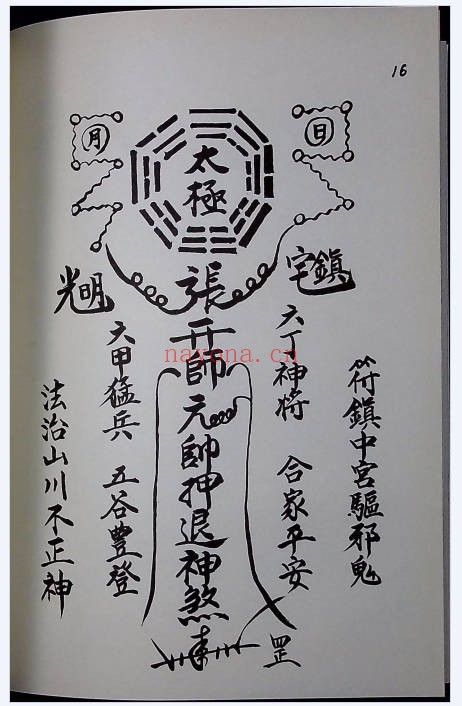 16
日
月
太極
鎮宅
明光
符鎮中宮驅邪鬼
六丁神将 合家平安
張天師元帥押退神煞
六甲猛兵 五谷豊登
法治山川不正神
罡
nayona.cn